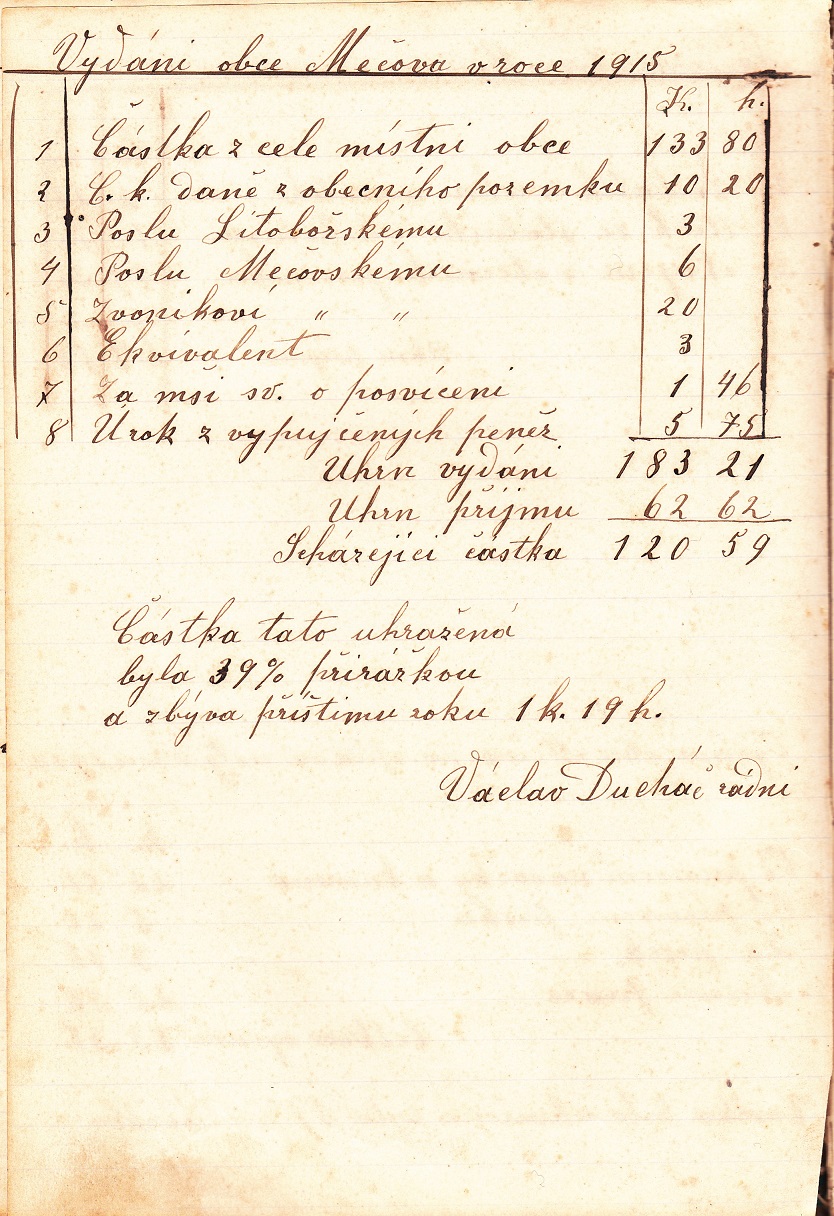 Vydáni obce Mečova v roce 1915
K. h.
1 Částka z cele místni obce 133 80
2 C. k. daně z obecního pozemku 10 20
3 Poslu Litobořskému 3
4 Poslu Mečovskému 6
5 Zvonikovi " " 20
6 Ekvivalent 3
7 Za mši sv. o posvíceni 1 46
8 Úrok z vypujčených peněz 5 75
Uhrn vydáni 183 21
Uhrn přijmu 62 62
Scházejíci částka 120 59
Částka tato uhražená
byla 39% přirážkou
a zbýva příštimu roku 1 k. 19 h.
Václav Ducháč rádni